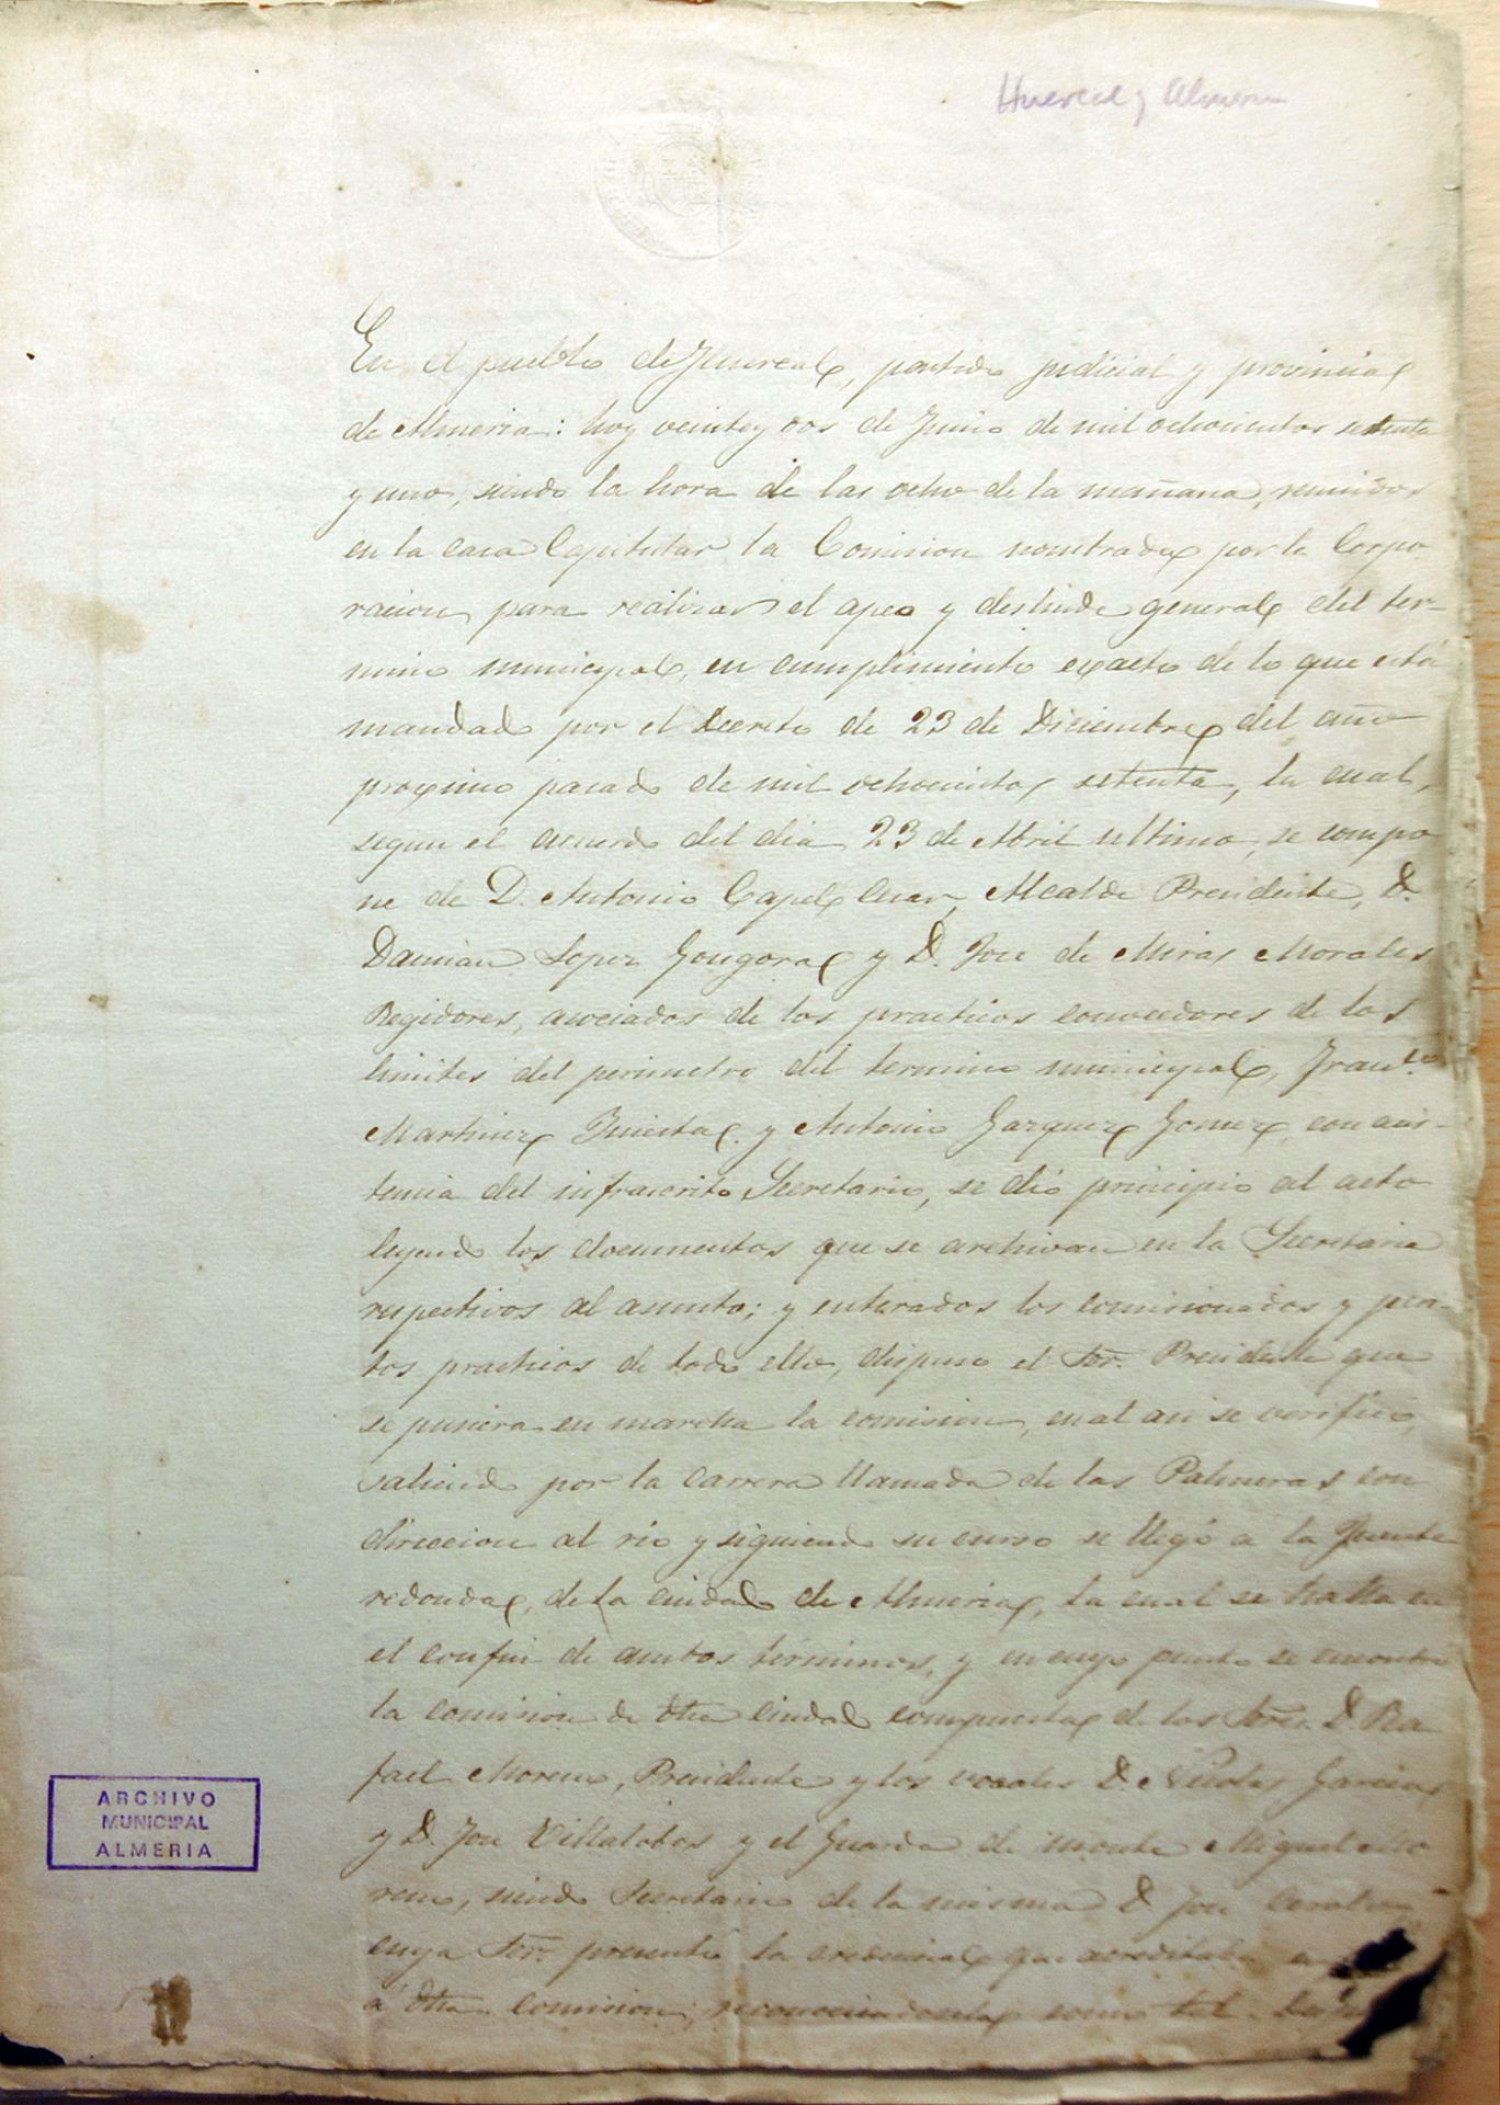 Huercal y Almeria
En el pueblo de Huercal, partido judicial y provincia
de Almeria: hoy veinte y dos de Junio de mil ochocientos setenta
y uno, siendo la hora de las ocho de la mañana, reunidos
en la casa Capitular la Comision nombrada por la Corpo
racion para realizar el apeo y deslinde general del ter-
mino municipal, en cumplimiento exacto de lo que está
mandado por el Decreto de 23 de Diciembre del año
proximo pasado de mil ochocientos setenta, la cual,
segun el acuerdo del dia 23 de Abril ultimo, se compo
ne de D. Antonio Capel Cesar, Alcalde Presidente, D.
Damian Lopez Gongora y D. Jose de Miras Morales
Regidores, asociados de los practicos conocedores de los
limites del perimetro del termino municipal, Franco.
Martinez Iniesta y Antonio Gazquez Gomez, con asis-
tencia del infrascrito Secretario, se dió principio al acto
leyendo los documentos que se archivan en la Secretaria
respectivos al asunto; y enterados los comisionados y peri-
tos practicos de todo ello, dispuso el Sor. Presidente que
se pusiera en marcha la comision, cual asi se verificó,
saliendo por la carrera llamada de las Palmeras con
direccion al rio y siguiendo su curso se llegó a la Fuente
redonda, de la ciudad de Almeria, la cual se halla en
el confin de ambos términos, y en cuyo punto se encontró
la comision de dha ciudad compuesta de los Sores. D. Ra
fael Moreno, Presidente y los vocales D. Nicolas Garcia
y D. Jose Villalobos y el Guarda de monte Miguel Mo
reno, siendo Secretario de la misma D. Jose
cuyo Sor. presentó la credencial que acreditaba
a dha. comision, reconociendosela como tal.
ARCHIVO
MUNICIPAL
ALMERIA